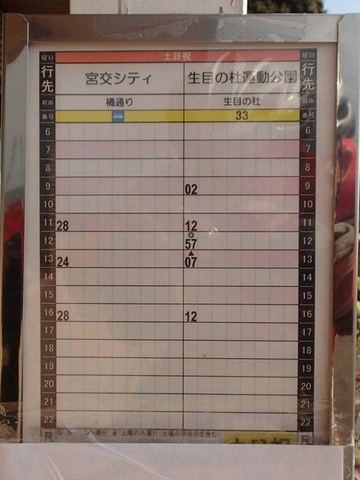 曜日 土日祝 曜日
行先 宮交シティ 生目の杜運動公園 行先
経由 橘通り 生目の杜 経由
番号 33 番号
6 6
7 7
8 8
9 02 9
10 10
11 28 12 11
12 ◎ 57 12
13 24 ▲ 07 13
14 14
15 15
16 28 12 16
17 17
18 18
19 19
20 20
21 21
22 22